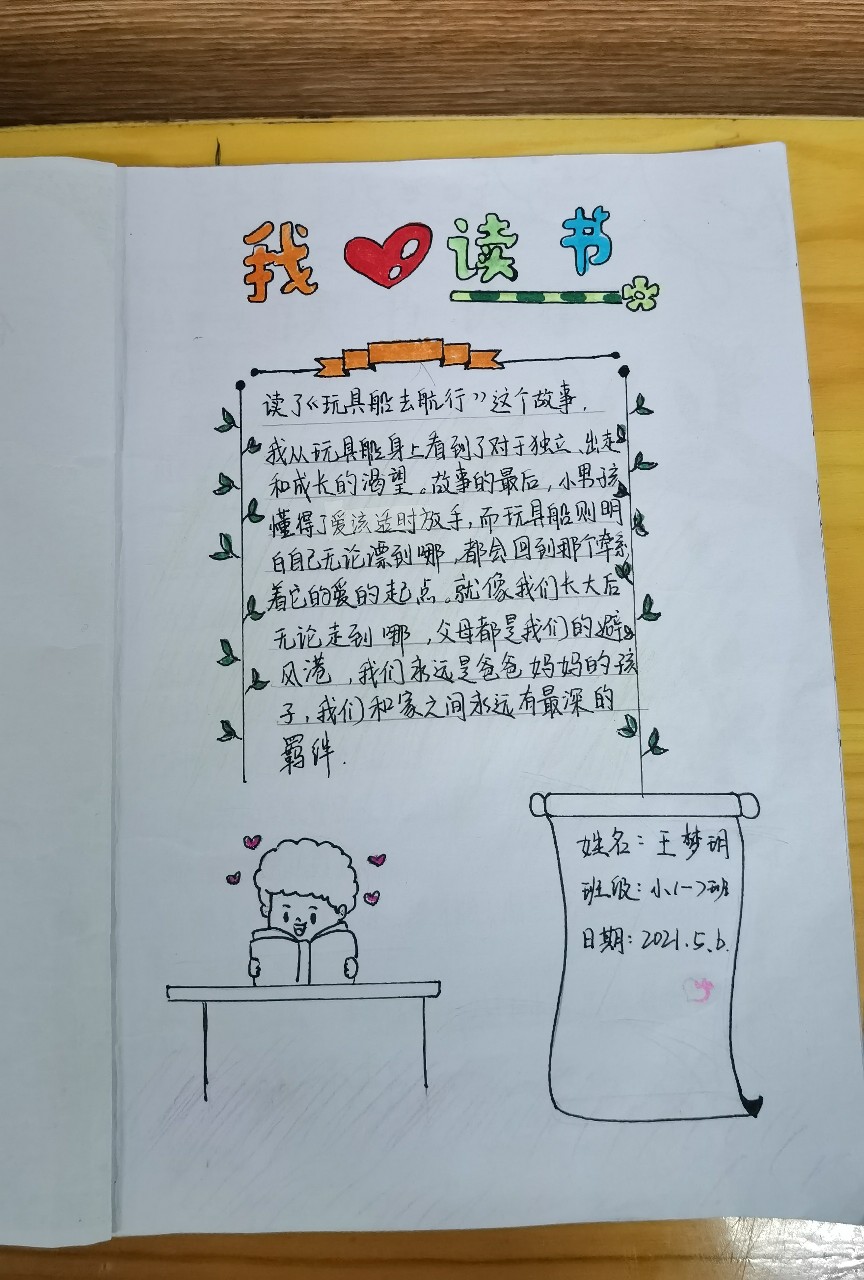 我 读 书
读了《玩具船去航行》这个故事.
我从玩具船身上看到了对于独立、出走
和成长的渴望。故事的最后，小男孩
懂得了爱该适时放手，而玩具船则明
白自己无论漂到哪，都会回到那个牵系
着它的爱的起点。就像我们长大后
无论走到哪，父母都是我们的避
风港，我们永远是爸爸妈妈的孩
子，我们和家之间永远有最深的
羁绊.
姓名：王梦玥
班级：小(一)班
日期：2021.5.6.